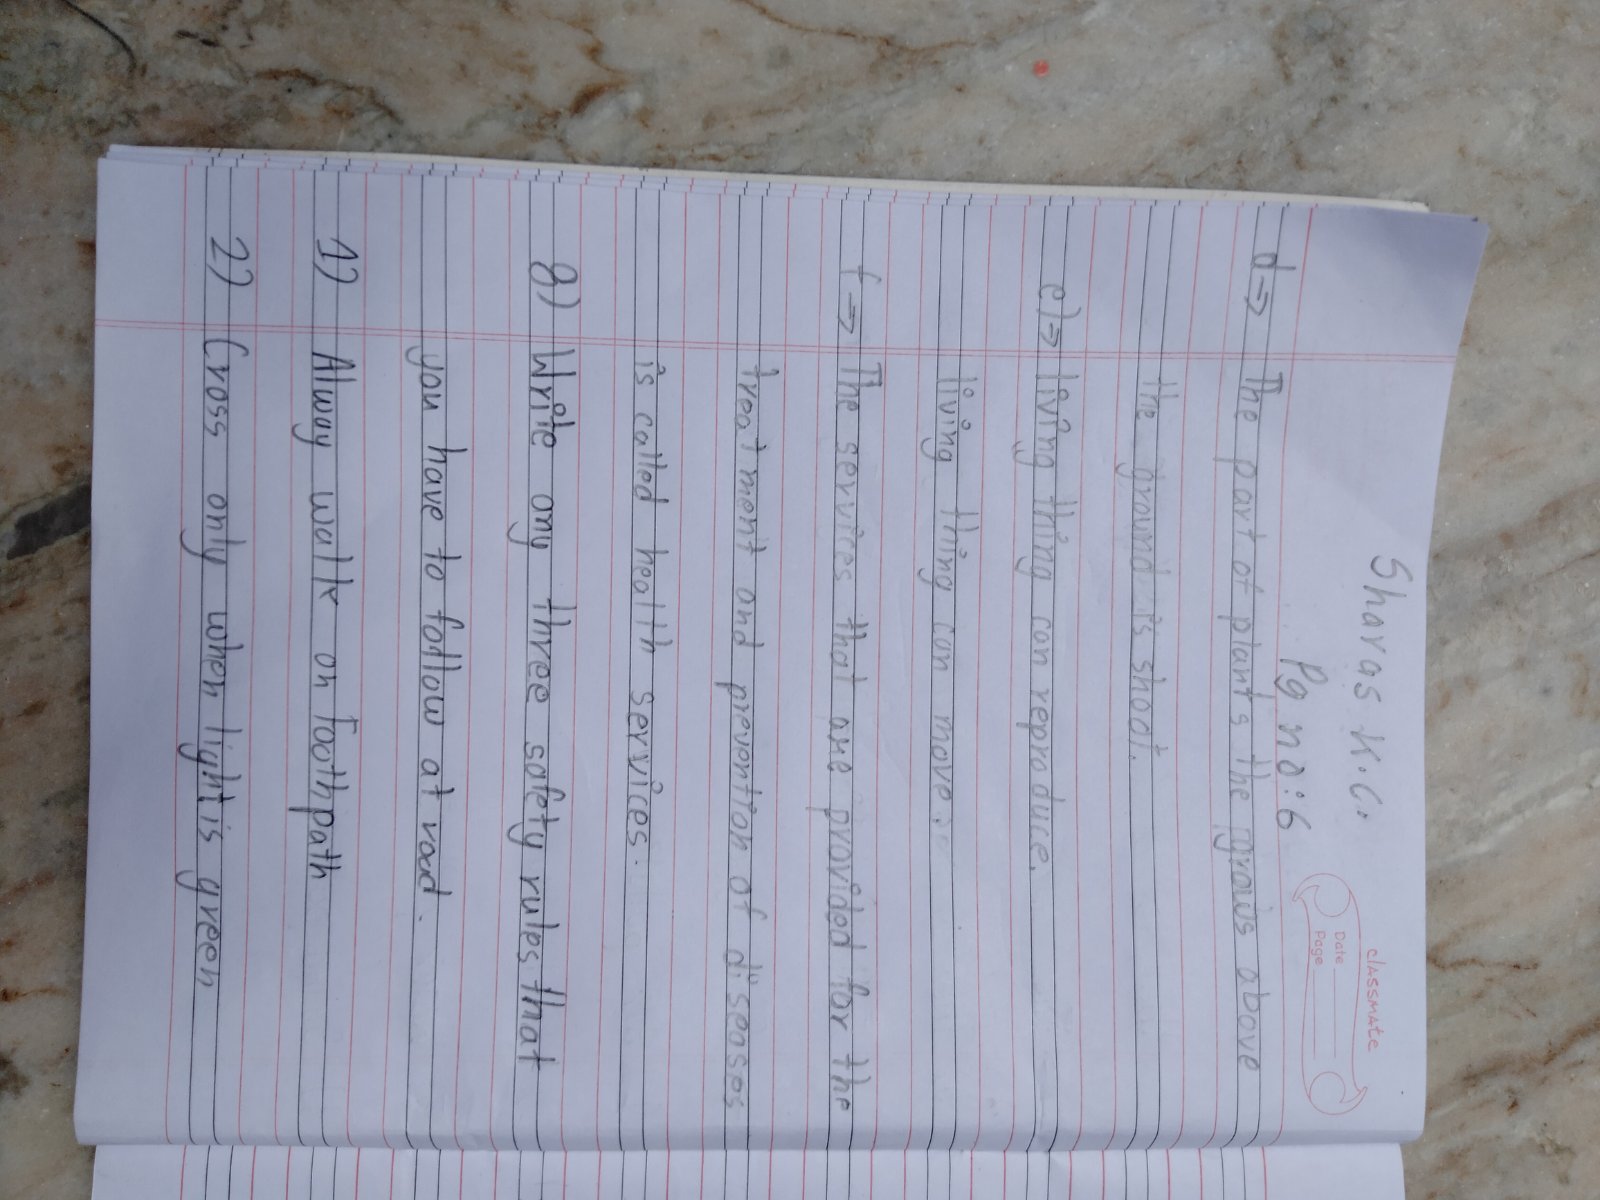 Sharas K.C.
Pg no:6
classmate
Date
Page
d⇒ The part of plants the grows above
the ground is shoot.
e)⇒ living thing can reproduce.
living thing can move.
f⇒ The services that are provided for the
treatment and prevention of diseases
is called health services.
8) Write any three safety rules that
you have to follow at road.
1) Alway walk on Foothpath
2) Cross only when light is green